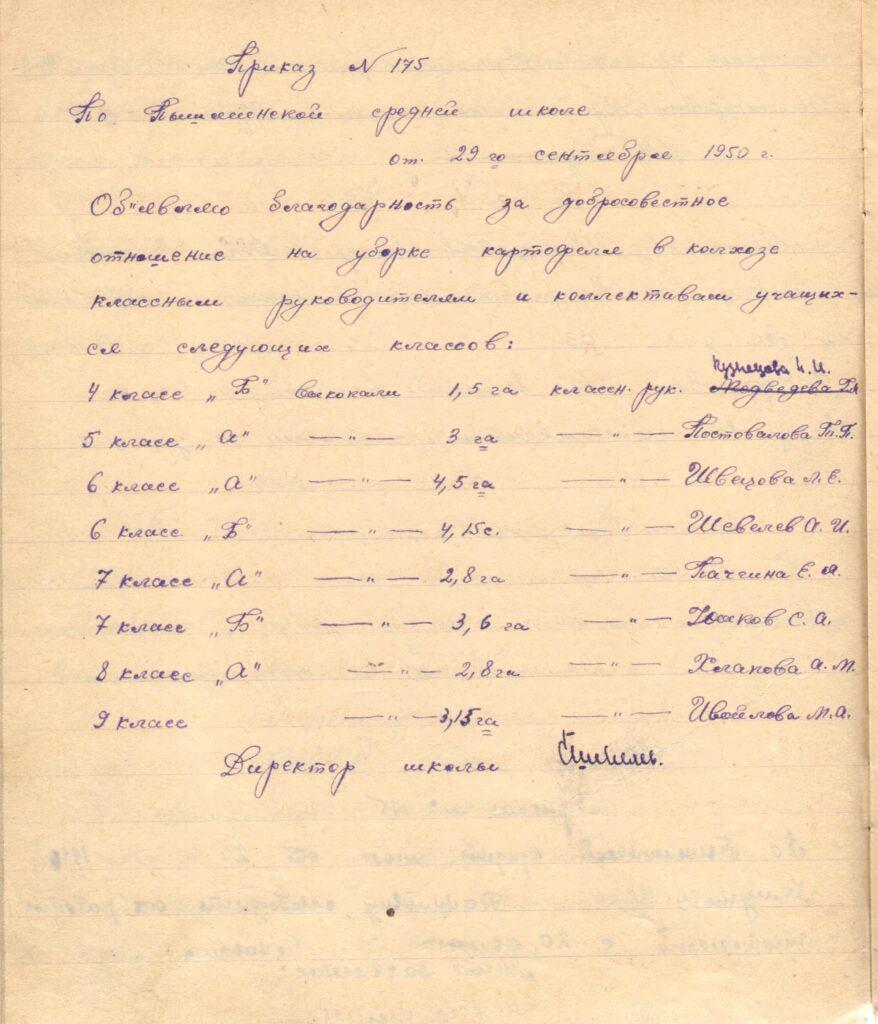 Приказ № 175
По Пышминской средней школе
от 29го сентября 1950 г.
Об"являю благодарность за добросовестное
отношение на уборке картофеля в колхозе
классным руководителям и коллективам учащих-
ся следующих классов:
Кузнецова К. И.
4 класс „Б" выкопали 1,5 га классн. рук. Медведева
5 класс „А" —"— 3 га —"— Постовалова П. П.
6 класс „А" —"— 4,5 га —"— Швецова Л. Е.
6 класс „Б" —"— 4,15 —"— Шевелев А. И.
7 класс „А" —"— 2,8 га —"— Пачгина Е. Я.
7 класс „Б" —"— 3,6 га —"— Южаков С. А.
8 класс „А" —"— 2,8 га —"— Хлапова А. М.
9 класс —"— 3,15 га —"— Ивойлова М. А.
Директор школы